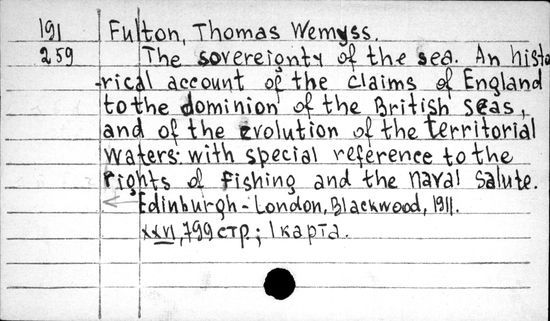 191 Fulton, Thomas Wemyss.
259 The sovereignty of the sea. An histo
rical account of the claims of England
to the dominion of the British Seas,
and of the evolution of the territorial
waters: with special reference to the
rights of fishing and the naval salute.
Edinburgh - London, Blackwood, 1911.
XXVI, 799 стр.; 1 карта.